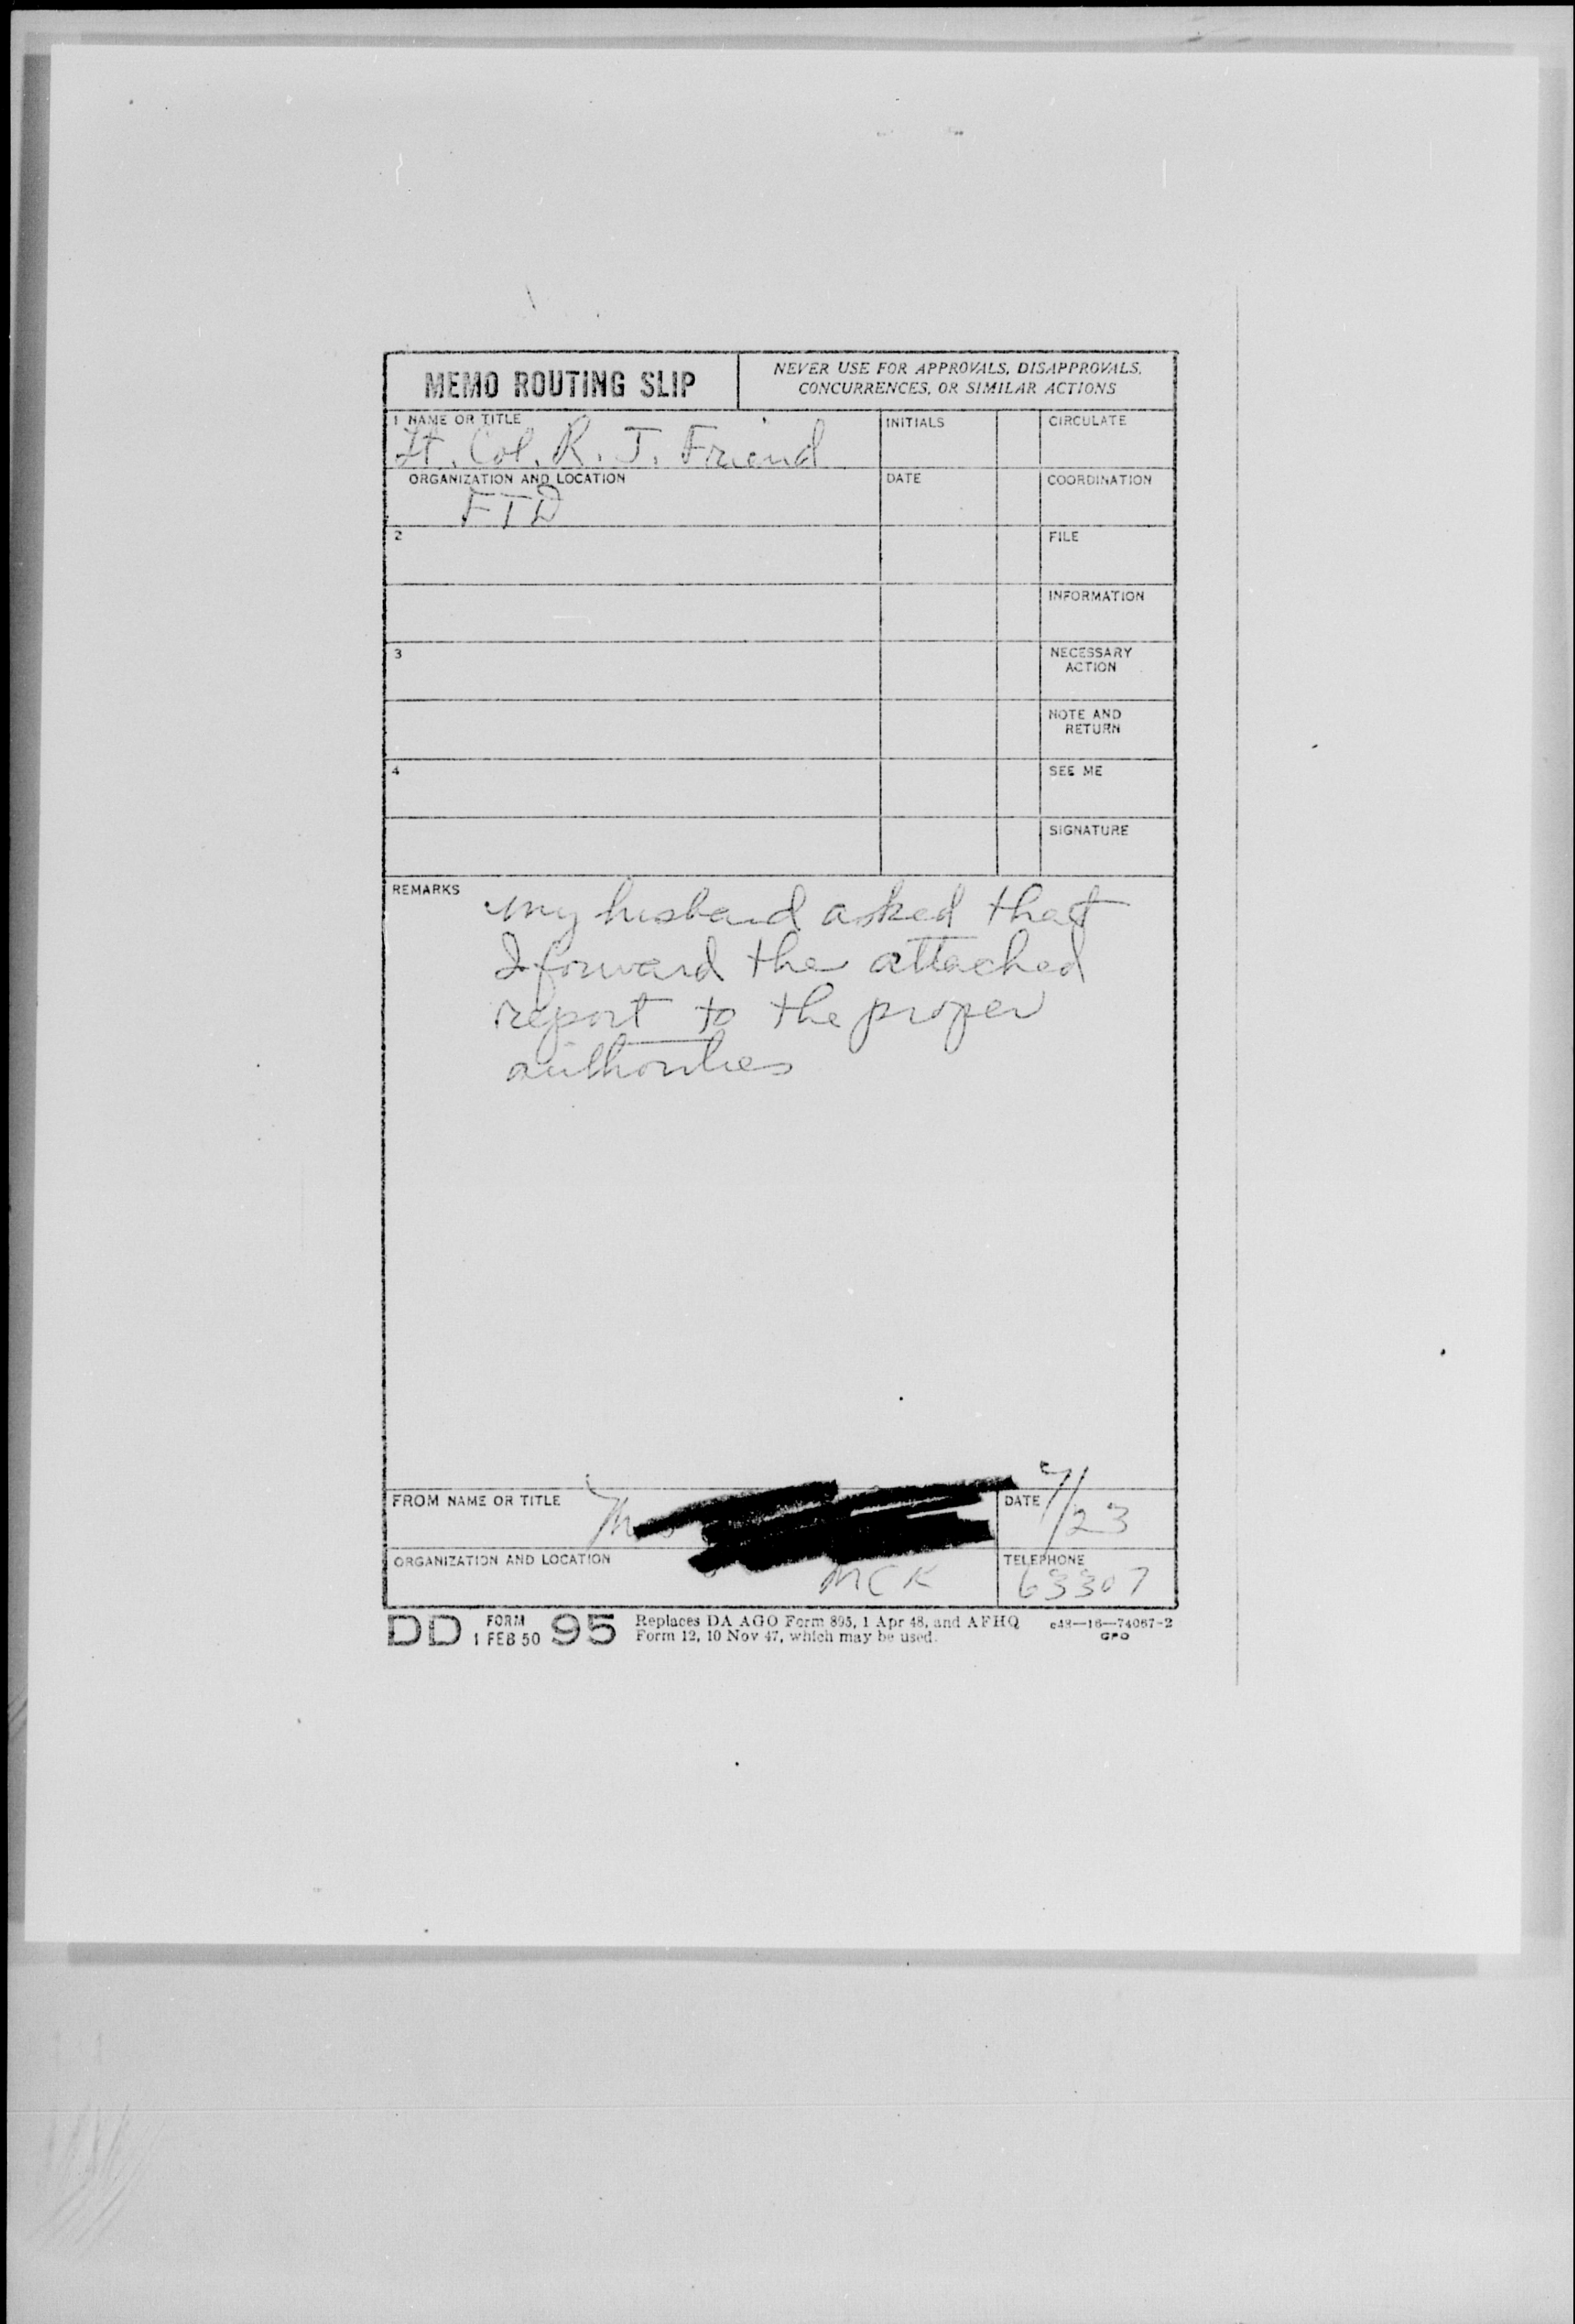 MEMO ROUTING SLIP
NEVER USE FOR APPROVALS, DISAPPROVALS,
CONCURRENCES, OR SIMILAR ACTIONS
1 NAME OR TITLE
Lt. Col. R. J. Friend
INITIALS
CIRCULATE
ORGANIZATION AND LOCATION
FTD
DATE
COORDINATION
2
FILE
INFORMATION
3
NECESSARY
ACTION
NOTE AND
RETURN
4
SEE ME
SIGNATURE
REMARKS
My husband asked that
I forward the attached
report to the proper
authorities
FROM NAME OR TITLE
DATE
/23
ORGANIZATION AND LOCATION
MCK
TELEPHONE
63307
DD FORM 95
1 FEB 50
Replaces DA AGO Form 895, 1 Apr 48, and AFHQ
Form 12, 10 Nov 47, which may be used.
c48—16—74067-2
GPO